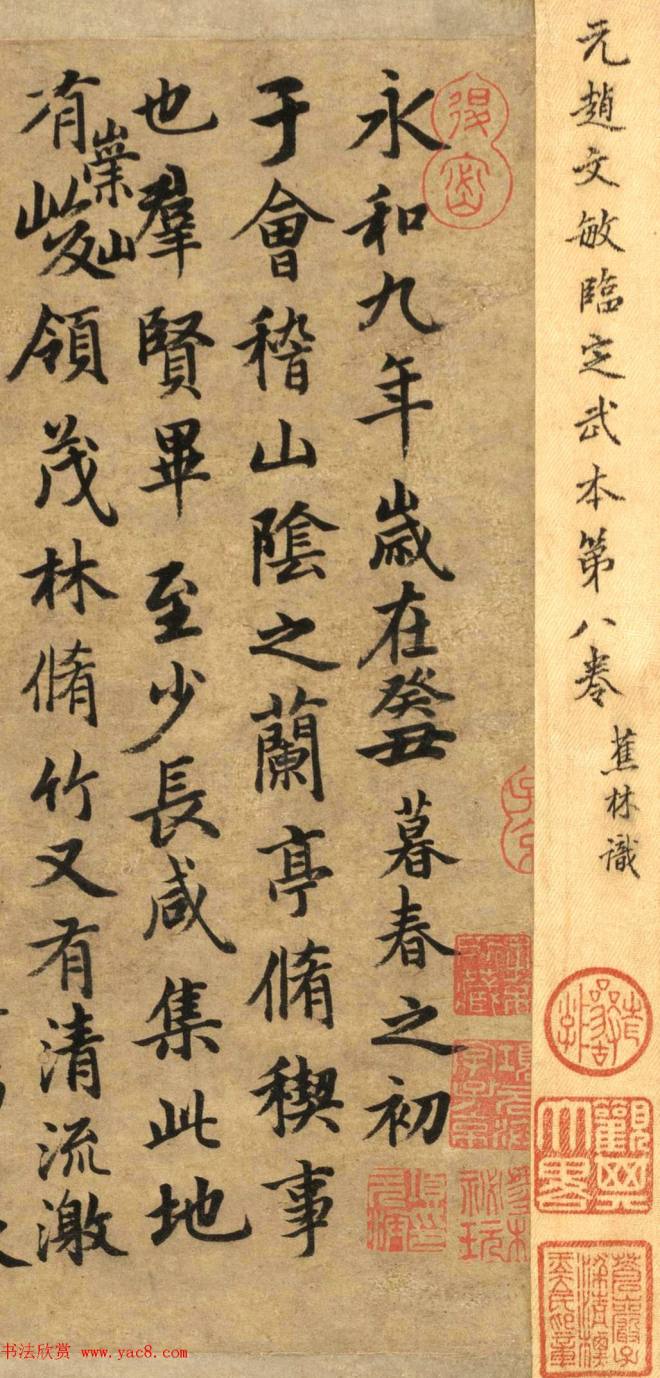 元趙文敏臨定武本第八卷
蕉林識
永和九年歲在癸丑暮春之初
于會稽山陰之蘭亭脩稧事
也羣賢畢至少長咸集此地
有崇山峻領茂林脩竹又有清流激
書法欣赏 www.yac8.com